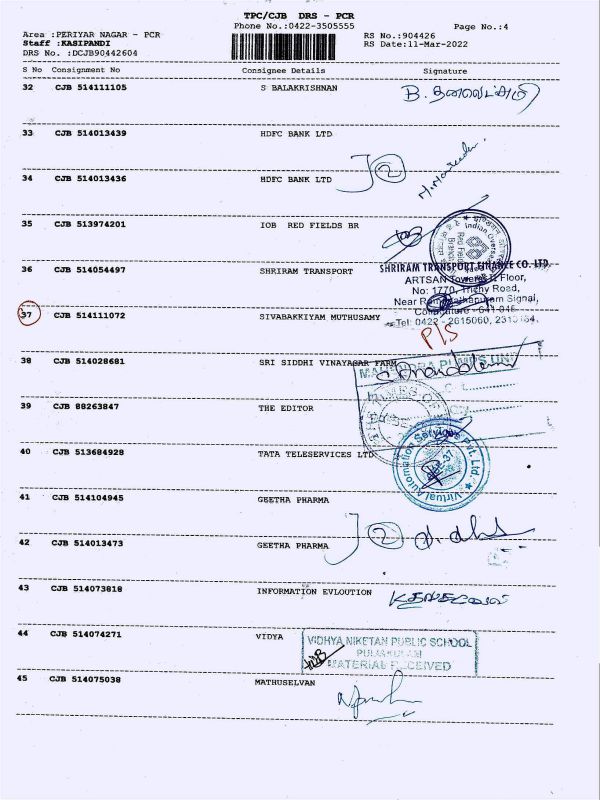 TPC/CJB DRS - PCR
Phone No.:0422-3505555
Page No.:4
Area :PERIYAR NAGAR - PCR
RS No.:904426
Staff :KASIPANDI
RS Date:11-Mar-2022
DRS No. :DCJB90442604
S No Consignment No Consignee Details Signature
32 CJB 514111105 S BALAKRISHNAN
33 CJB 514013439 HDFC BANK LTD
34 CJB 514013436 HDFC BANK LTD
35 CJB 513974201 IOB RED FIELDS BR
36 CJB 514054497 SHRIRAM TRANSPORT
SHRIRAM TRANSPORT FINANCE CO. LTD.
No: 1770, Trichy Road,
37 CJB 514111072 SIVABAKKIYAM MUTHUSAMY
Tel: 0422 - 2615060,
P/S
38 CJB 514028681 SRI SIDDHI VINAYAGAR FARM
39 CJB 88263847 THE EDITOR
40 CJB 513684928 TATA TELESERVICES LTD
Virtual Automation Services Pvt. Ltd.
41 CJB 514104945 GEETHA PHARMA
42 CJB 514013473 GEETHA PHARMA
43 CJB 514073818 INFORMATION EVLOUTION
44 CJB 514074271 VIDYA
VIDHYA NIKETAN PUBLIC SCHOOL
MATERIAL RECEIVED
45 CJB 514075038 MATHUSELVAN